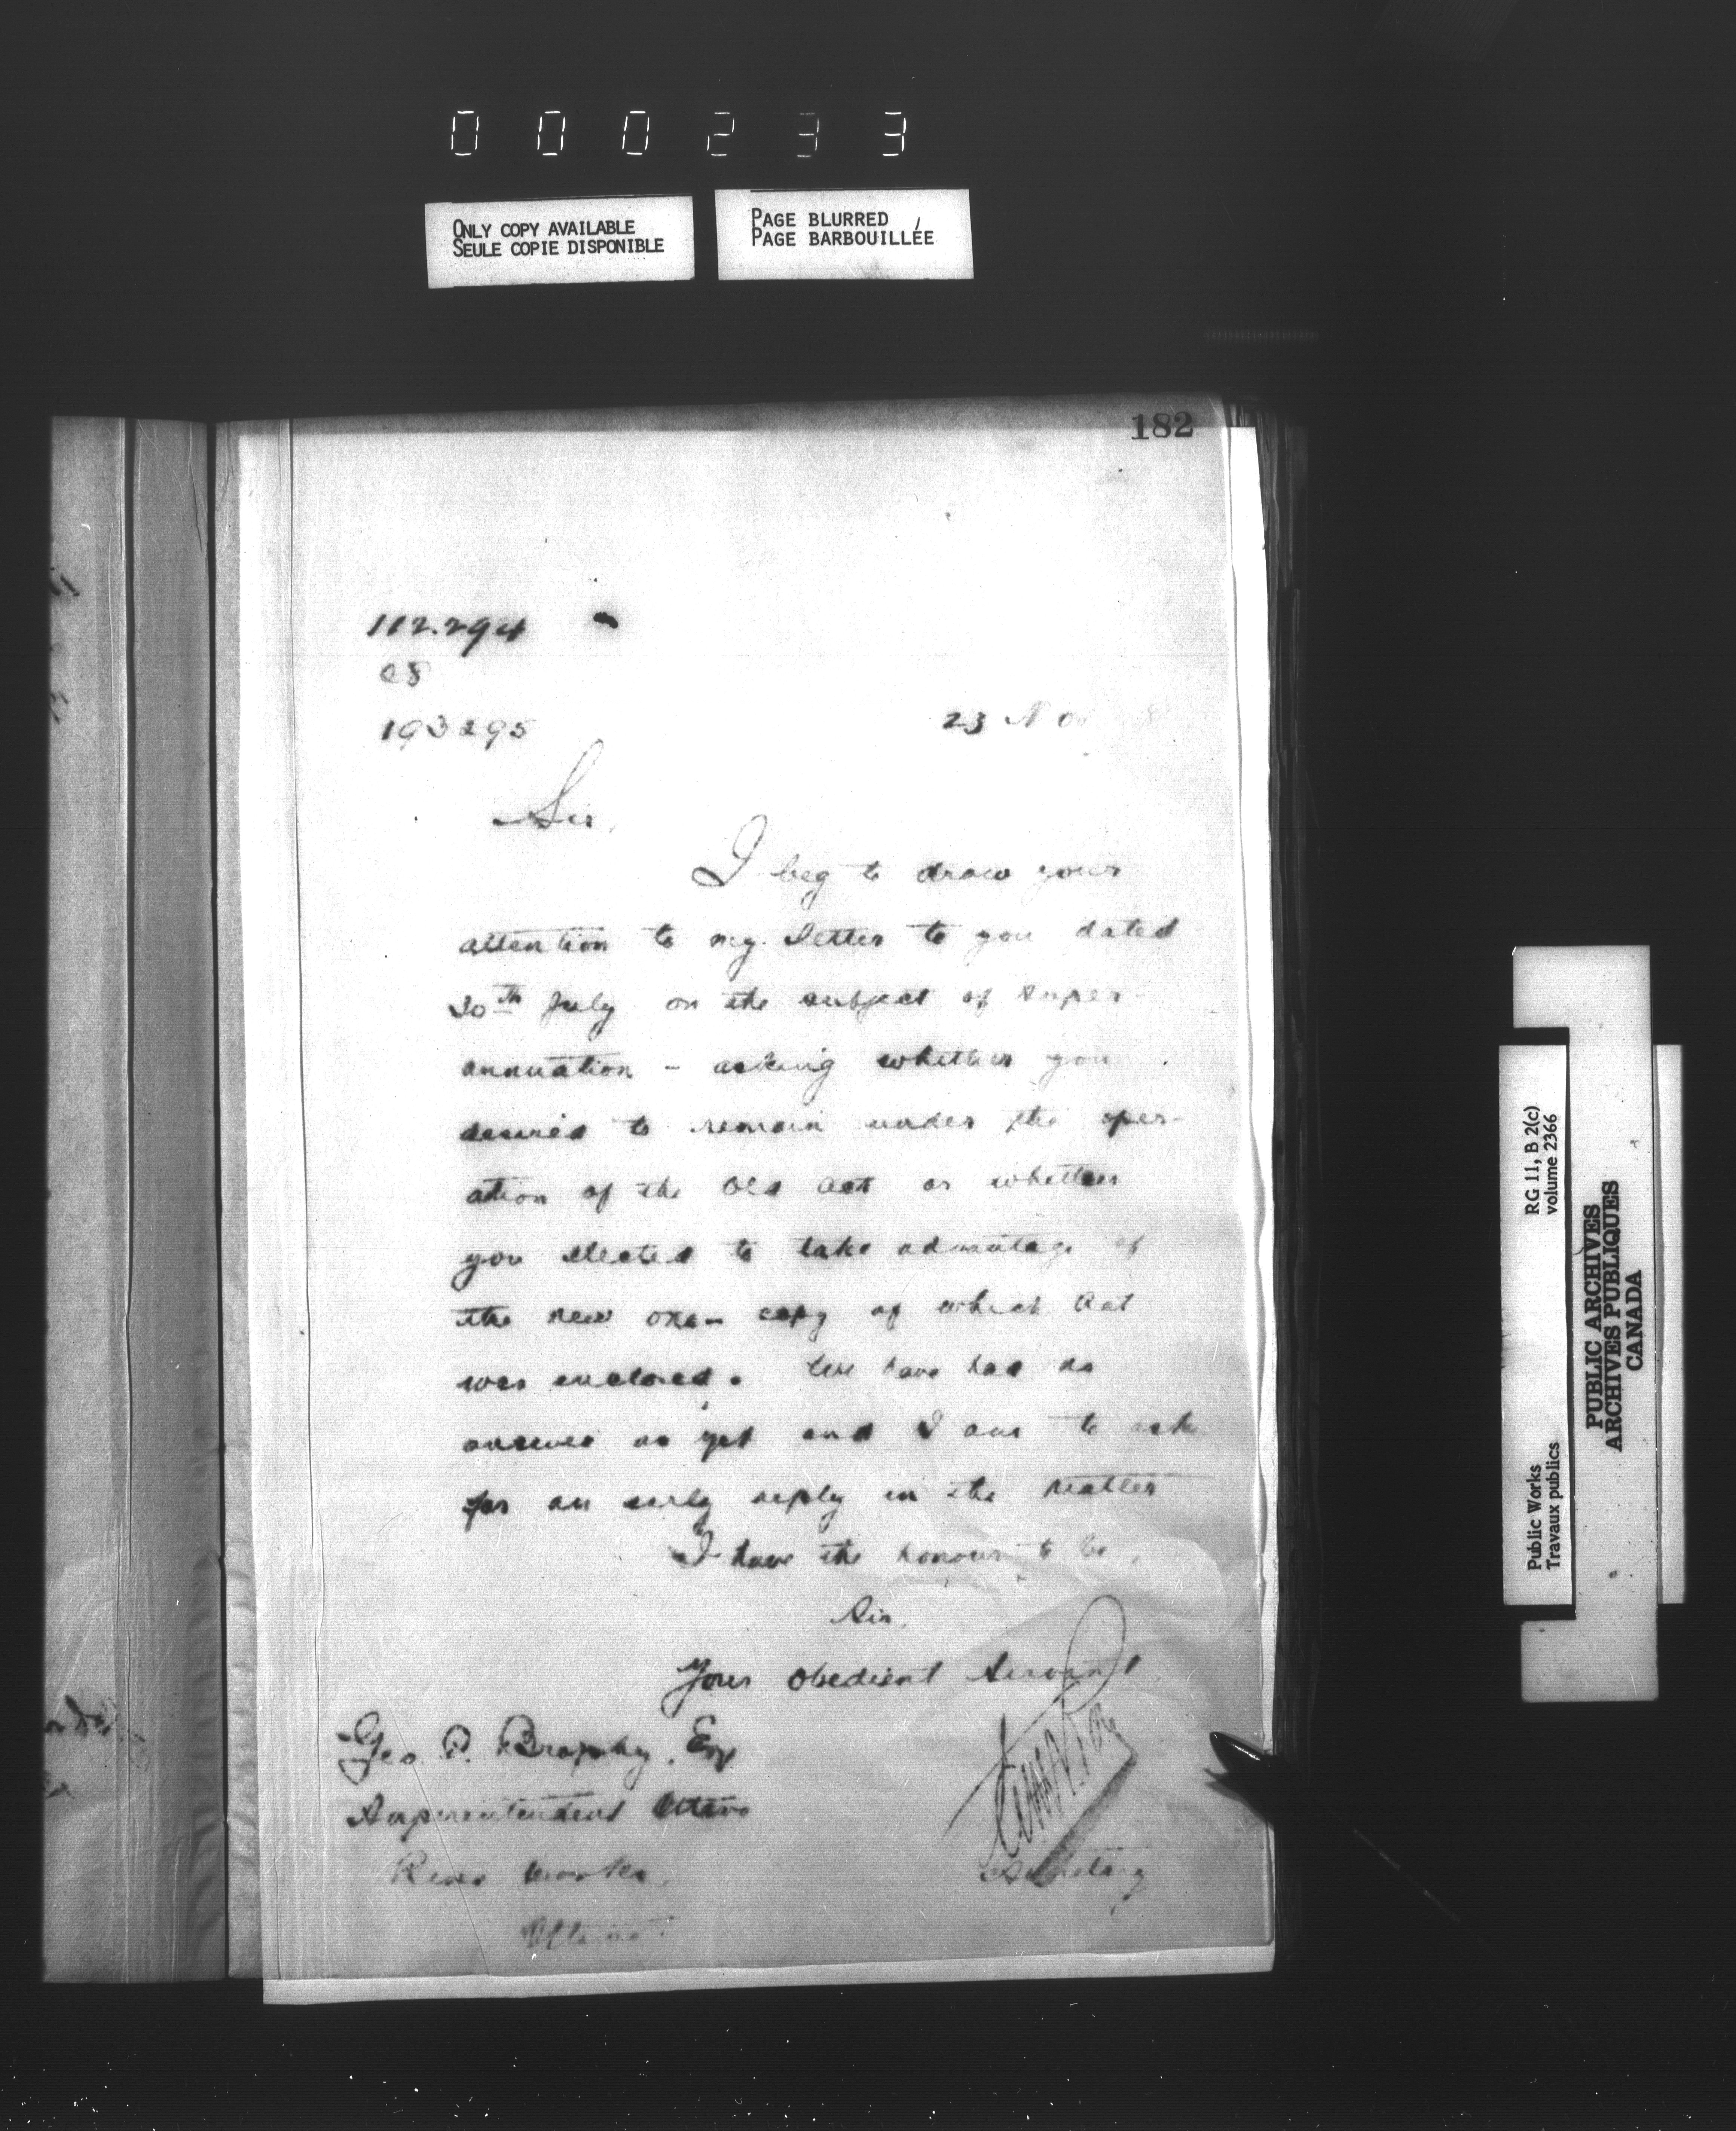 000233
ONLY COPY AVAILABLE
SEULE COPIE DISPONIBLE
PAGE BLURRED
PAGE BARBOUILLÉE
182
112.294
08
193295
23 Nov
Sir,
I beg to draw your
attention to my letter to you dated
30th July on the subject of super-
annuation - asking whether you
desired to remain under the oper-
ation of the Old Act or whether
you elected to take advantage of
the new one - copy of which Act
was enclosed. We have had no
answer as yet and I am to ask
for an early reply in the matter
I have the honour to be,
Sir,
Your Obedient Servant
Geo. P. Brophy, Esq
Superintendent Ottawa
River Works.
Ottawa.
Secretary
RG 11, B 2(c)
volume 2366
Public Works
Travaux publics
PUBLIC ARCHIVES
ARCHIVES PUBLIQUES
CANADA